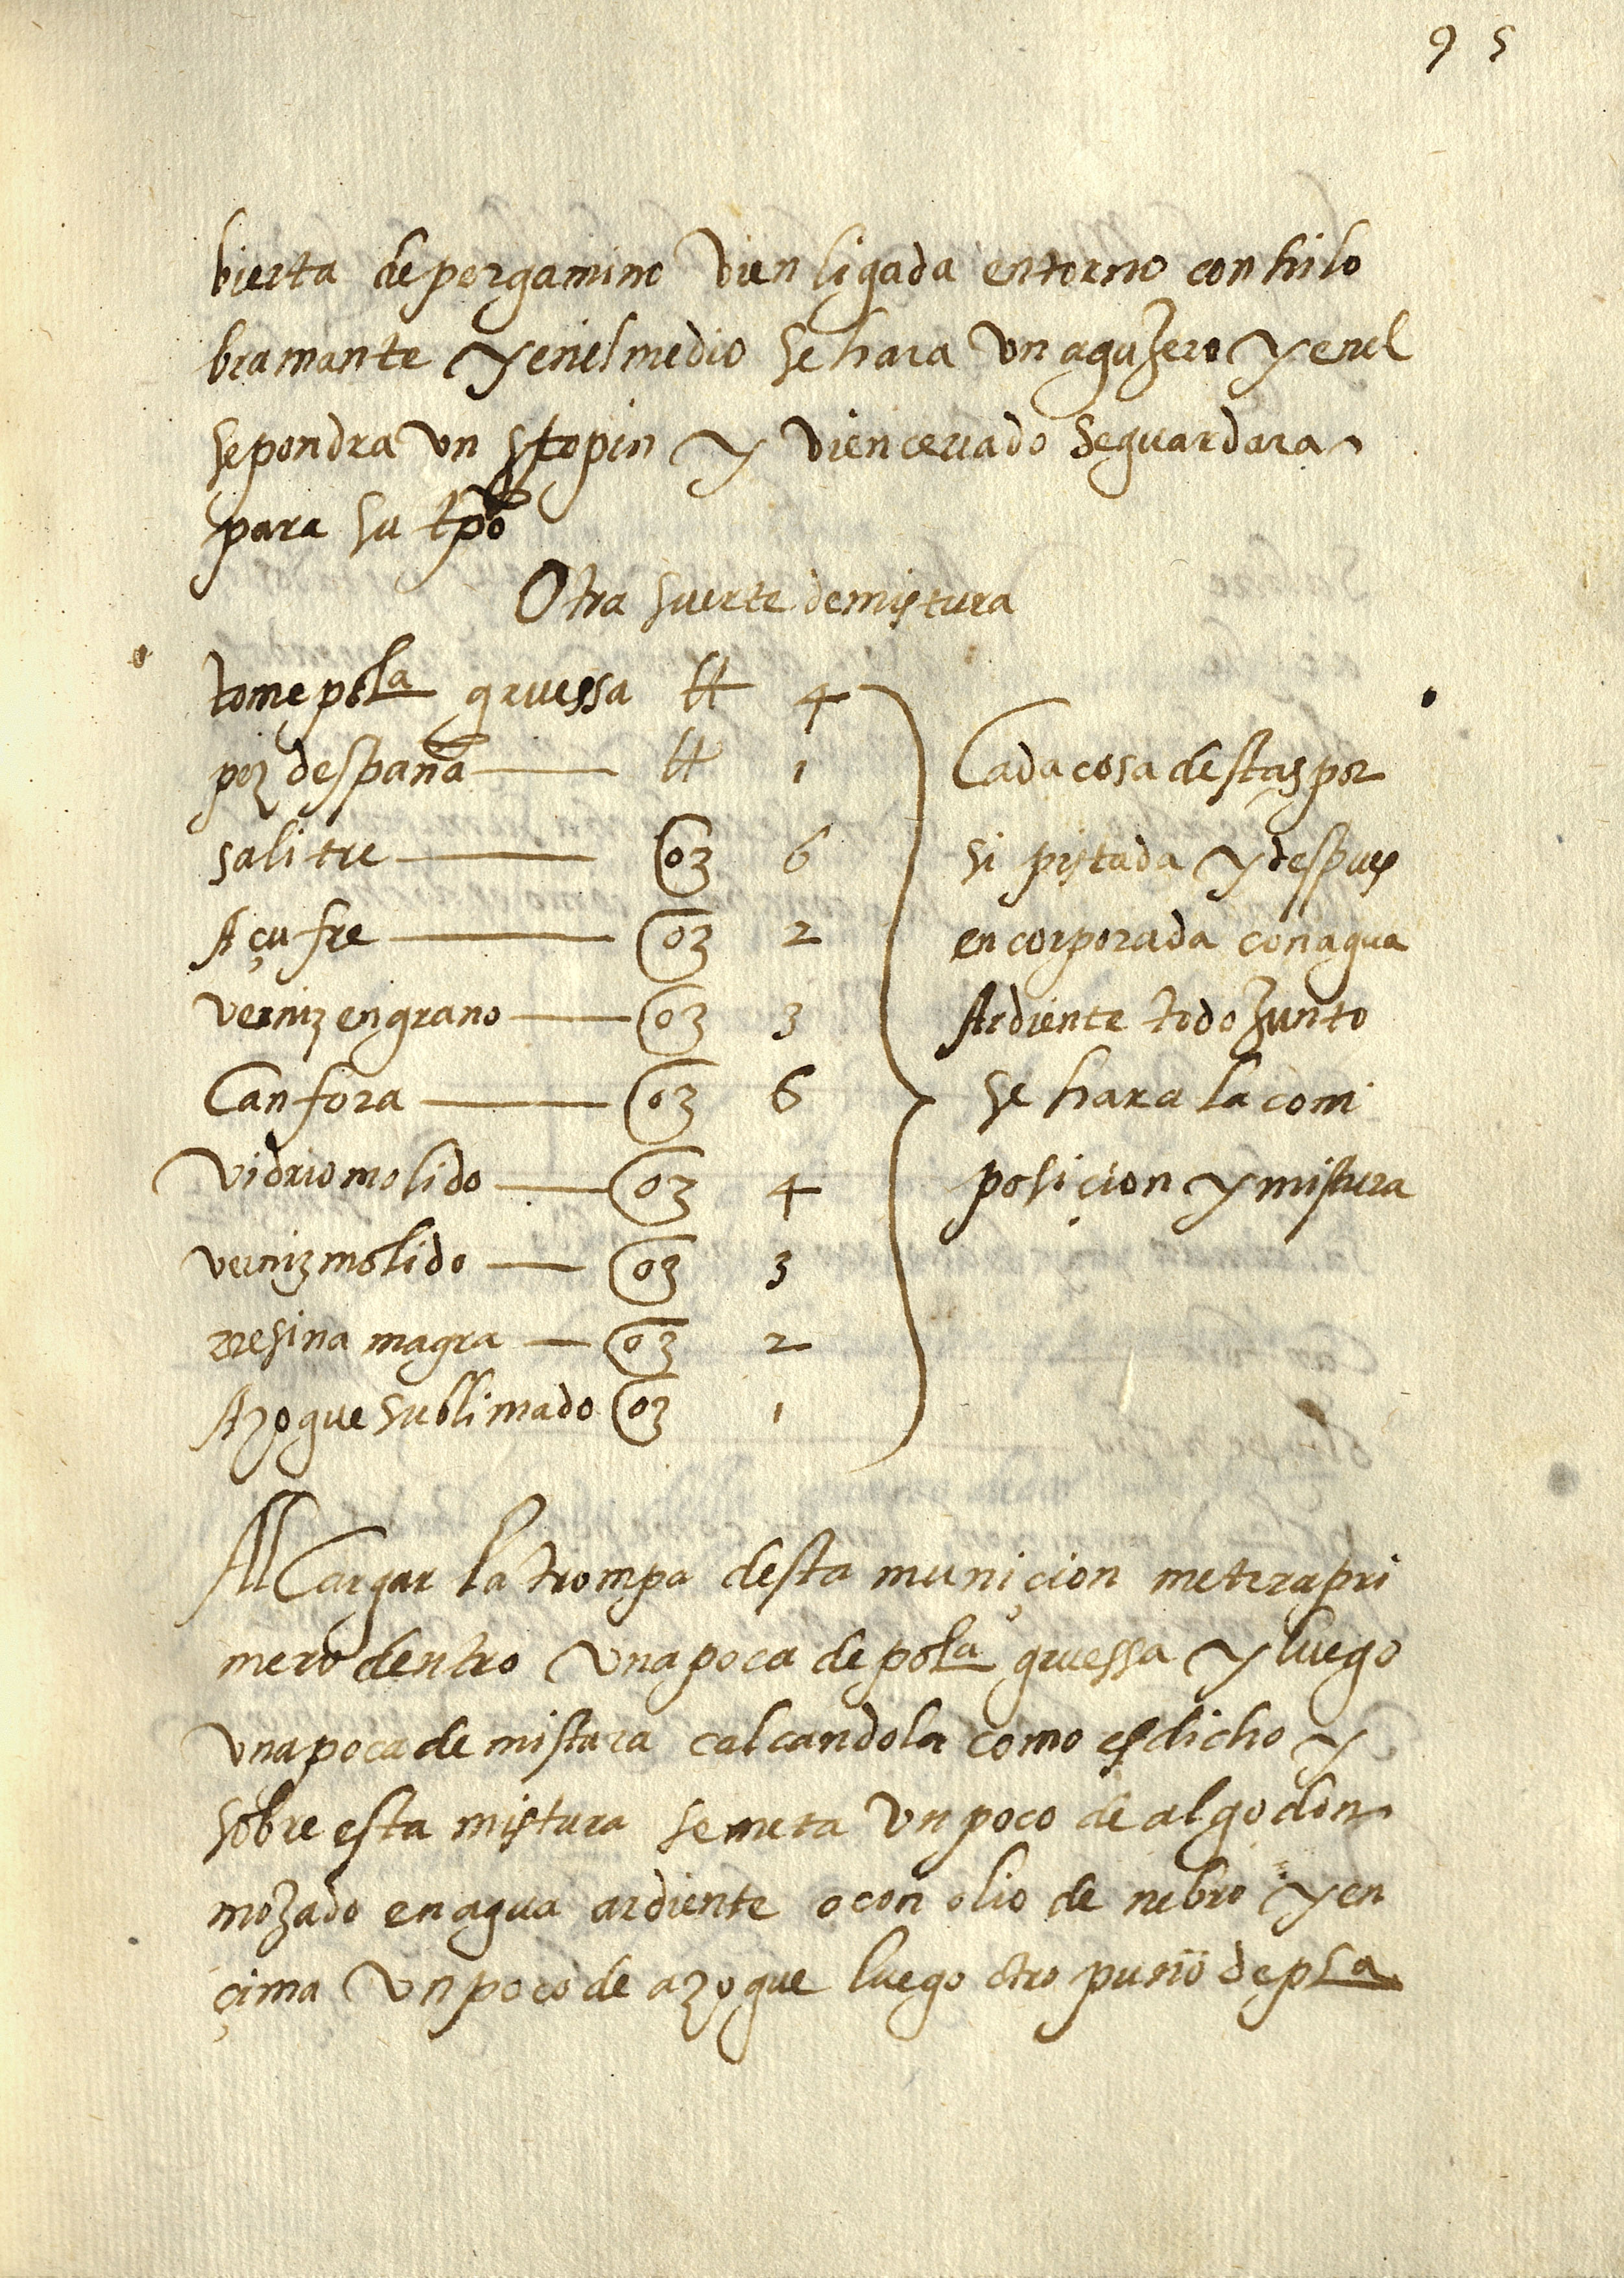 95
bierta de pergamino vien ligada entorno con hilo
bramante y en el medio se hara vn aguzero y enel
se pondra vn stopin y vien cerrado se guardara
para su tpõ
Otra suerte de mistura
tome pola gruessa tt 4
pez despaña tt 1
salitre oz 6
Açufre oz 2
verniz en grano oz 3
Canfora oz 6
Vidrio molido oz 4
verniz molido oz 3
rresina magra oz 2
Azogue sublimado oz 1
Cada cosa destas por
si pistada y despues
encorporada con agua
Ardiente todo Junto
se hara la com
posiçion y mistura
Al Cargar la trompa desta muniçion metera pri
mero dentro vna poca de pola gruessa y luego
vna poca de mistura calcandola como es dicho y
sobre esta mistura se meta vn poco de algodon
mozado en agua ardiente o con olio de nebro y en
çima vn poco de azogue luego otro puño de pla